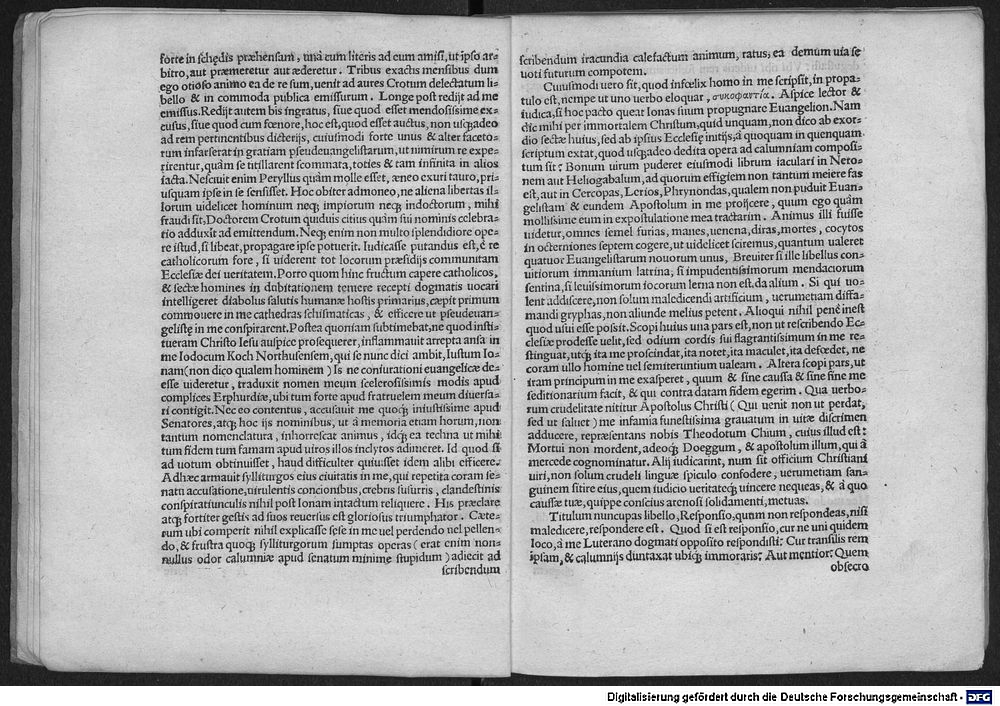 forte in schędis præhensum, unà cum literis ad eum amisi, ut ipso ar⸗
bitro, aut præmeretur aut æderetur. Tribus exactis mensibus dum
ego otioso animo ea de re sum, uenit ad aures Crotum delectatum li⸗
bello & in commoda publica emissurum. Longe post redijt ad me
emissus. Redijt autem bis ingratus, siue quod esset mendosissime ex⸗
cusus, siue quod cum fœnore, hoc est, quod esset auctus, non usq́;adeo
ad rem pertinentibus dicterijs, cuiusmodi forte unus & alter faceto⸗
rum infarserat in gratiam pseudeuangelistarum, ut nimirum re expe⸗
rirentur, quàm se titillarent scommata, toties & tam infinita in alios
iacta. Nesciuit enim Peryllus quàm molle esset, æneo exuri tauro, pri⸗
usquam ipse in se sensisset. Hoc obiter admoneo, ne aliena libertas il⸗
lorum uidelicet hominum neq; impiorum neq; indoctorum, mihi
fraudi sit, Doctorem Crotum quiduis citius quàm sui nominis celebra⸗
tio adduxit ad emittendum. Neq; enim non multo splendidiore ope⸗
re istud, si libeat, propagare ipse potuerit. Iudicasse putandus est, è re
catholicorum fore, si uiderent tot locorum præsidijs communitam
Ecclesiæ dei ueritatem. Porro quom hinc fructum capere catholicos,
& sectæ homines in dubitationem temere recepti dogmatis uocari
intelligeret diabolus salutis humanæ hostis primarius, cœpit primum
commouere in me cathedras schismaticas, & efficere ut pseudeuan⸗
gelistę in me conspirarent. Postea quoniam subtimebat, ne quod insti⸗
tueram Christo Iesu auspice prosequerer, inflammauit arrepta ansa in
me Iodocum Koch Northusensem, qui se nunc dici ambit, Iustum Io⸗
nam (non dico qualem hominem) Is ne coniurationi euangelicæ de⸗
esse uideretur, traduxit nomen meum scelerosissimis modis apud
complices Erphurdiæ, ubi tum forte apud fratruelem meum diuersa⸗
ri contigit. Nec eo contentus, accusauit me quoq; iniustissime apud
Senatores, atq; hoc ijs nominibus, ut à memoria etiam horum, non
tantum nomenclatura, inhorrescat animus, idq; ea techna ut mihi
tum fidem tum famam apud uiros illos inclytos adimeret. Id quod si
ad uotum obtinuisset, haud difficulter quiuisset idem alibi efficere.
Ad hæc armauit sylliturgos eius ciuitatis in me, qui repetita coram se⸗
natu accusatione, uirulentis concionibus, crebris susurris, clandestinis
conspiratiunculis nihil post Ionam intactum reliquere. His præclare
atq; fortiter gestis ad suos reuersus est gloriosus triumphator. Cæte⸗
rum ubi comperit nihil explicasse sese in me uel perdendo uel pellen⸗
do, & frustra quoq; sylliturgorum sumptas operas (erat enim non⸗
nullus odor calumniæ apud senatum minime stupidum) adiecit ad
scribendum
scribendum iracundia calefactum animum, ratus, ea demum uia se
uoti futurum compotem.
Cuiusmodi uero sit, quod infœlix homo in me scripsit, in propa⸗
tulo est, nempe ut uno uerbo eloquar, συκοφαντία. Aspice lector &
iudica, si hoc pacto queat Ionas suum propugnare Euangelion. Nam
dic mihi per immortalem Christum, quid unquam, non dico ab exor⸗
dio sectæ huius, sed ab ipsius Ecclesię initijs, à quoquam in quenquam
scriptum extat, quod usq;adeo dedita opera ad calumniam composi⸗
tum sit? Bonum uirum puderet eiusmodi librum iaculari in Nero⸗
nem aut Heliogabalum, ad quorum effigiem non tantum meiere fas
est, aut in Cercopas, Lerios, Phrynondas, qualem non puduit Euan⸗
gelistam & eundem Apostolum in me proijcere, quum ego quàm
mollissime eum in expostulatione mea tractarim. Animus illi fuisse
uidetur, omnes semel furias, manes, uenena, diras, mortes, cocytos
in octerniones septem cogere, ut uidelicet sciremus, quantum ualeret
quatuor Euangelistarum nouorum unus, Breuiter si ille libellus con⸗
uitiorum immanium latrina, si impudentissimorum mendaciorum
sentina, si leuissimorum iocorum lerna non est, da alium. Si qui uo⸗
lent addiscere, non solum maledicendi artificium, uerumetiam diffa⸗
mandi gryphas, non aliunde melius petent. Alioqui nihil penè inest
quod usui esse possit. Scopi huius una pars est, non ut rescribendo Ec⸗
clesiæ prodesse uelit, sed odium cordis sui flagrantissimum in me re⸗
stinguat, utq́; ita me proscindat, ita notet, ita maculet, ita defœdet, ne
coram ullo homine uel semiteruntium ualeam. Altera scopi pars, ut
iram principum in me exasperet, quum & sine caussa & sine fine me
seditionarium facit, & qui contra datam fidem egerim. Qua uerbo⸗
rum crudelitate nititur Apostolus Christi (Qui uenit non ut perdat,
sed ut saluet) me infamia funestissima grauatum in uitæ discrimen
adducere, repræsentans nobis Theodotum Chium, cuius illud est:
Mortui non mordent, adeoq; Doeggum, & apostolum illum, qui à
mercede cognominatur. Alij iudicarint, num sit officium Christiani
uiri, non solum crudeli linguæ spiculo confodere, uerumetiam san⸗
guinem sitire eius, quem iudicio ueritateq; uincere nequeas, & à quo
caussæ tuæ, quippe conscius atenosi solidamenti, metuas.
Titulum nuncupas libello, Responsio, quum non respondeas, nisi
maledicere, respondere est. Quod si est responsio, cur ne uni quidem
loco, à me Luterano dogmati opposito respondisti? Cur transilis rem
ipsam, & calumnijs duntaxat ubiq; immoraris? Aut mentior? Quem
obsecro
Digitalisierung gefördert durch die Deutsche Forschungsgemeinschaft - DFG